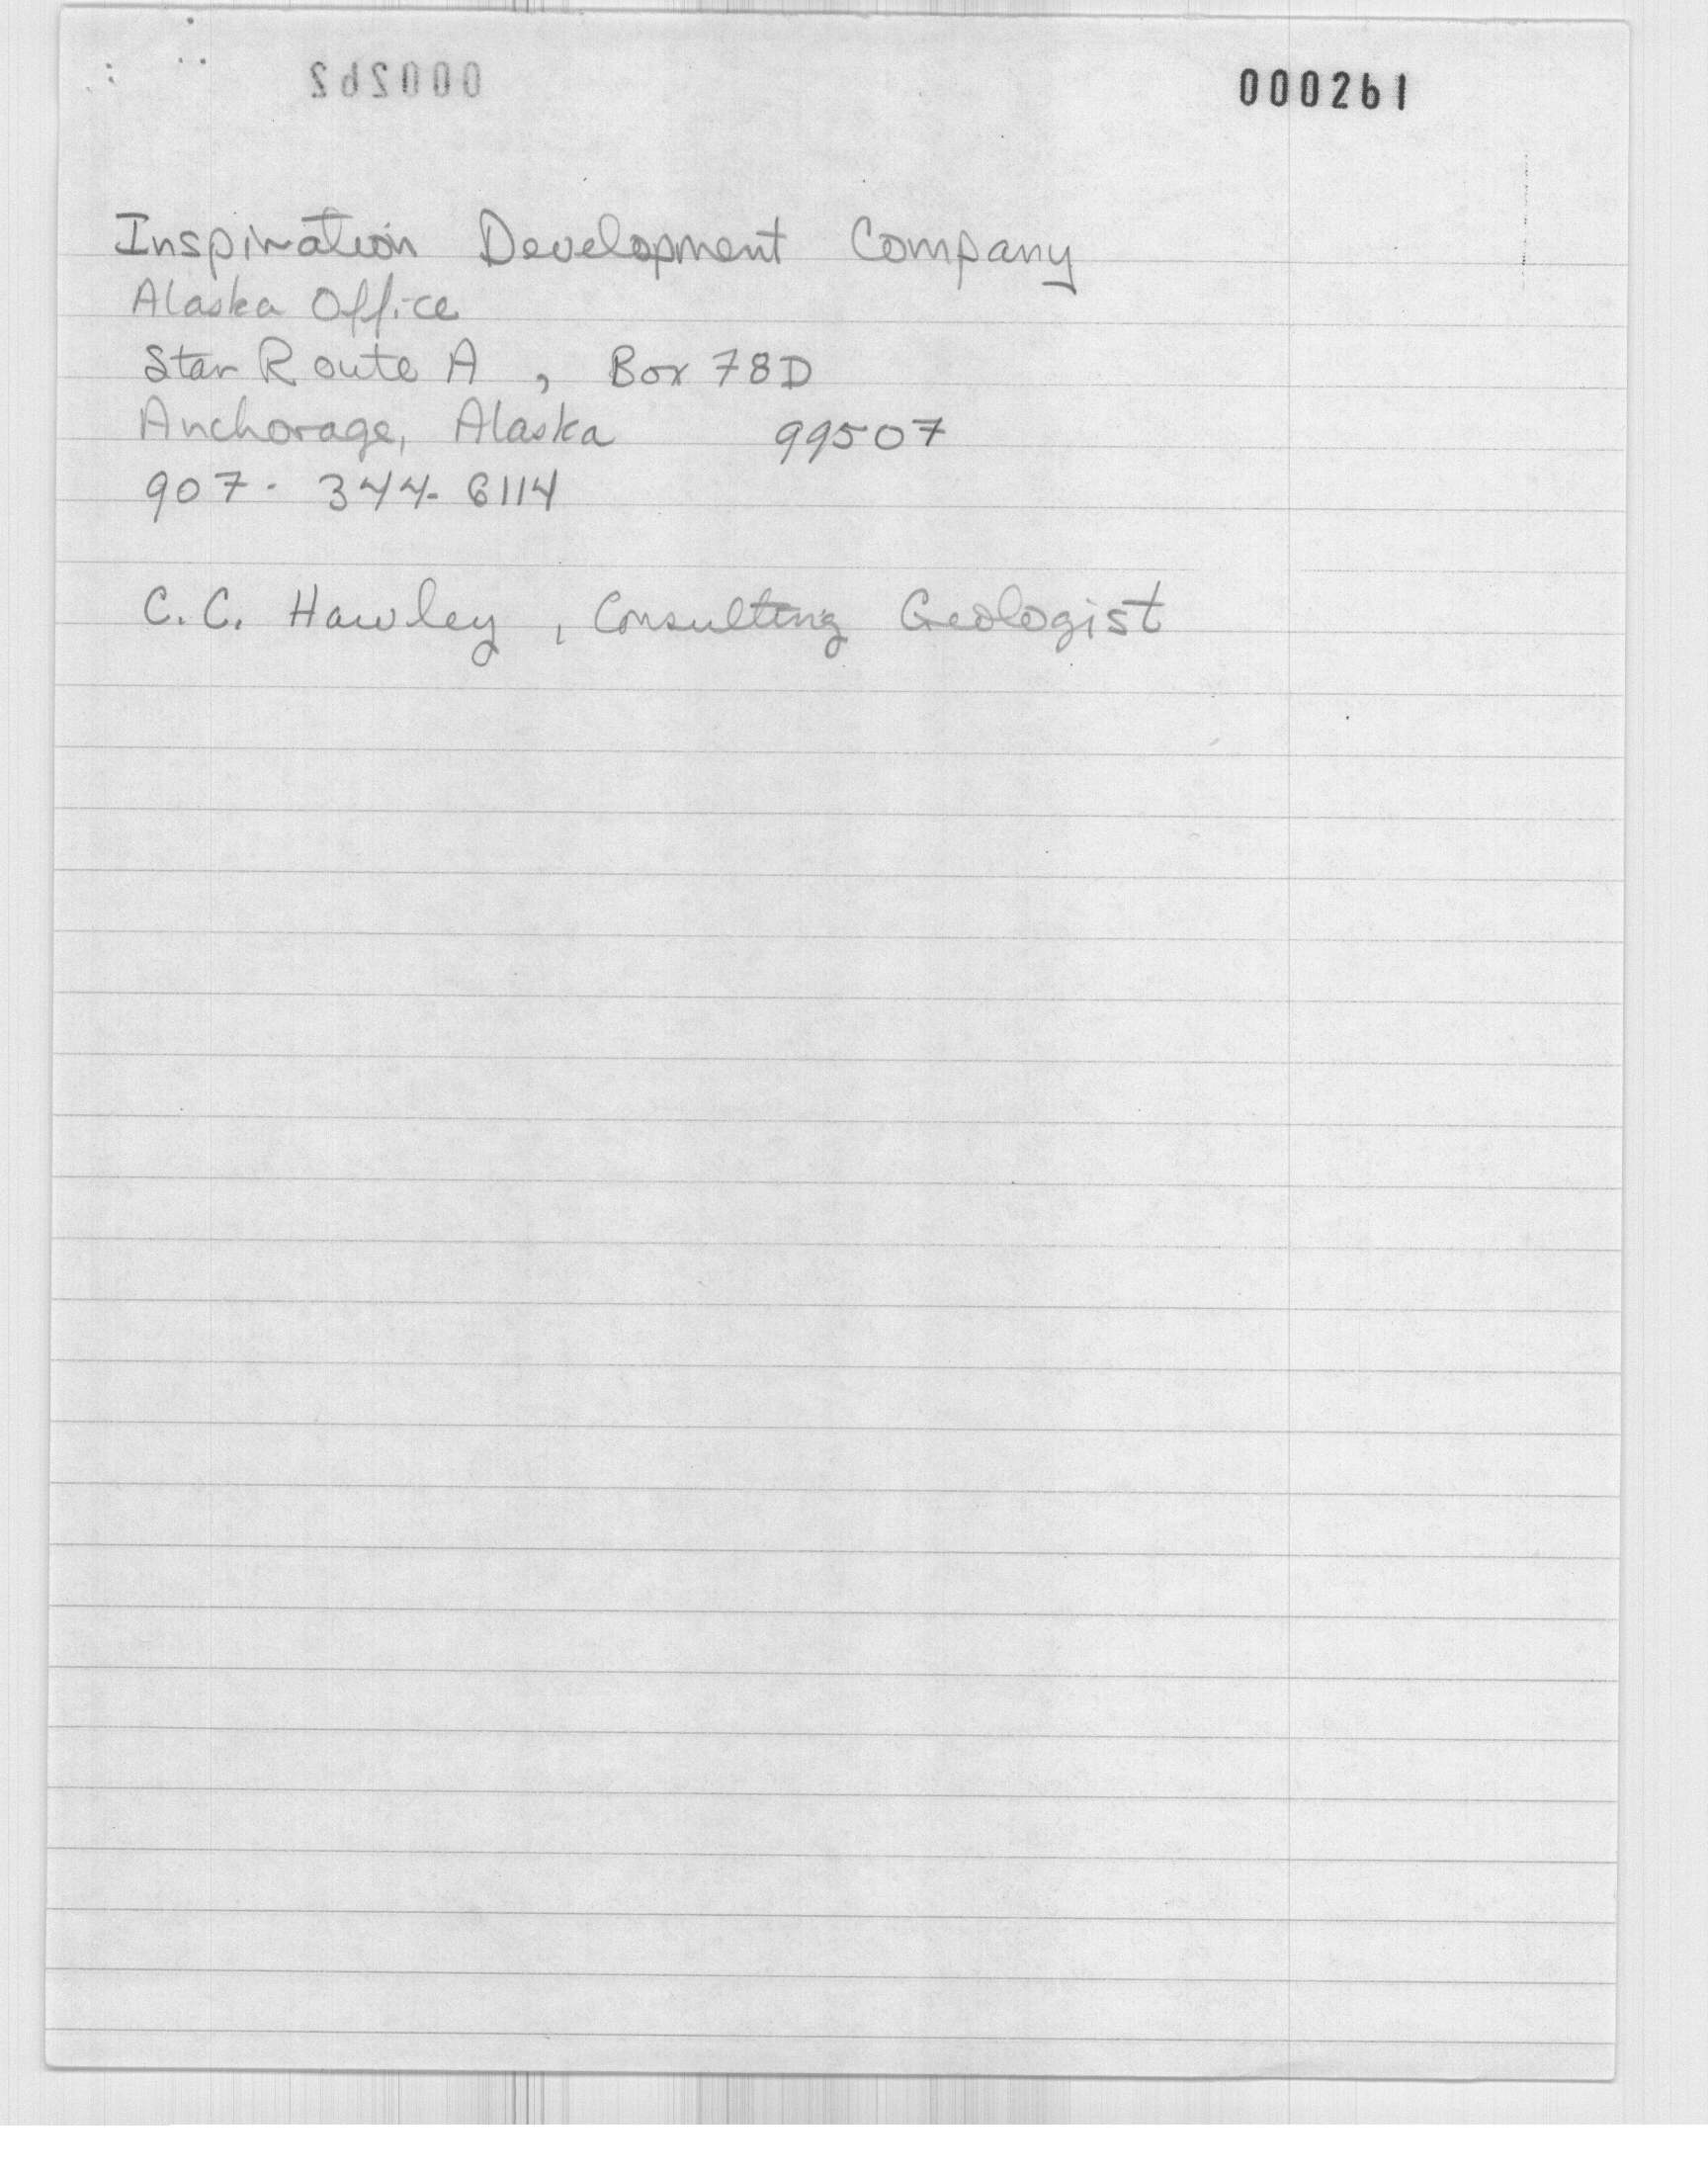 000262
000261
Inspiration Development Company
Alaska Office
Star Route A , Box 78D
Anchorage, Alaska 99507
907- 344-6114
C.C. Hawley , Consulting Geologist